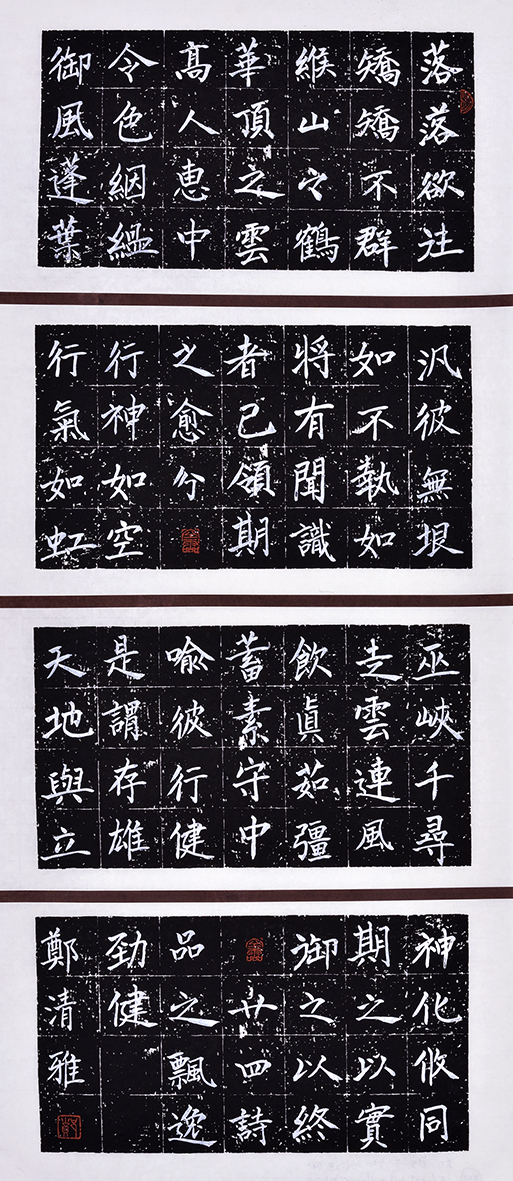 落落欲往
矯矯不群
緱山之鶴
華頂之雲
髙人恵中
令色絪縕
御風蓬葉
汎彼無垠
如不執如
將有聞識
者已領期
之愈分
行神如空
行氣如虹
巫峽千尋
走雲連風
飲眞茹彊
蓄素守中
喻彼行健
是謂存雄
天地與立
神化攸同
期之以實
御之以終
廿四詩
品之飄逸
勁健
鄭清雅